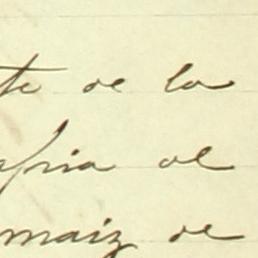 te de la
afria al
maiz de